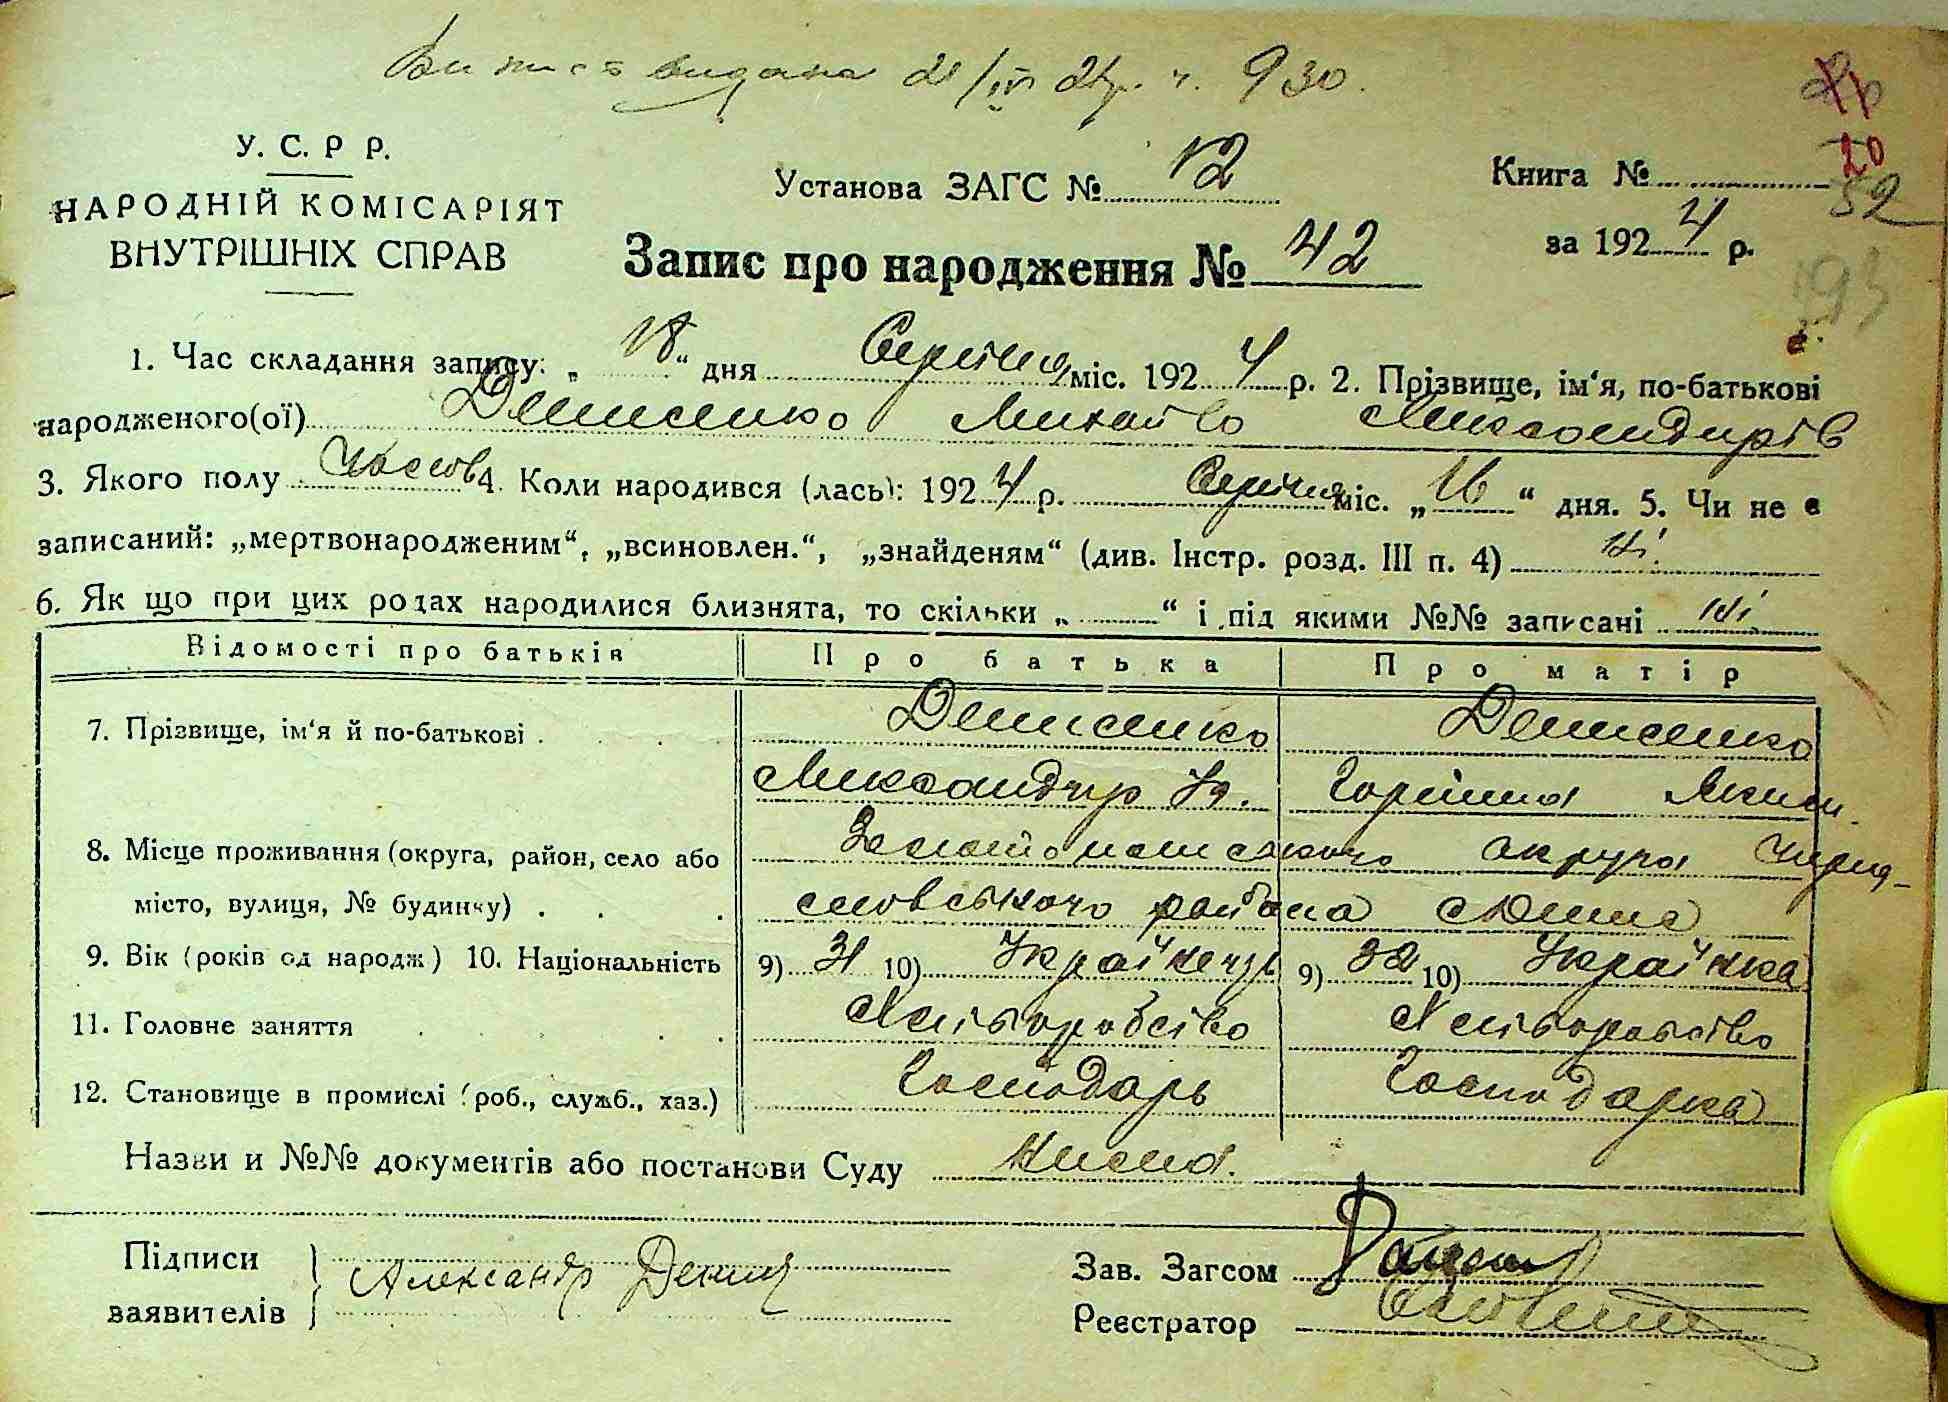 Витяг видана 21/IV 24р. ч. 930.
У. С. Р Р.
НАРОДНІЙ КОМІСАРІЯТ
ВНУТРІШНІХ СПРАВ
Установа ЗАГС № 12
Книга №
20
52
193
за 1924 р.
Запис про народження № 42
1. Час складання запису: „18“ дня Серпня міс. 1924 р. 2. Прізвище, ім‘я, по-батькові
народженого(ої) Денисенко Михайло Олександрів
3. Якого полу 4. Коли народився (лась): 1924 р. Серпня міс. „16“ дня. 5. Чи не є
записаний: „мертвонародженим“, „всиновлен.“, „знайденям“ (див. Інстр. розд. III п. 4) ні.
6. Як що при цих родах народилися близнята, то скільки „ “ і під якими №№ записані ні
Відомості про батьків Про батька Про матір
7. Прізвище, ім‘я й по-батькові . Денисенко Денисенко
Олександр Горпина Яким.
8. Місце проживання (округа, район, село або Золотоношського округа
місто, вулиця, № будинку) . району
9. Вік (років од народж) 10. Національність 9) 31 10) Українець 9) 32 10) Українка
11. Головне заняття Хліборобство Хліборобство
12. Становище в промислі (роб., служб., хаз.) Господарь Господарка
Назви и №№ документів або постанови Суду
Підписи
заявителів
Александр Денис
Зав. Загсом
Реєстратор